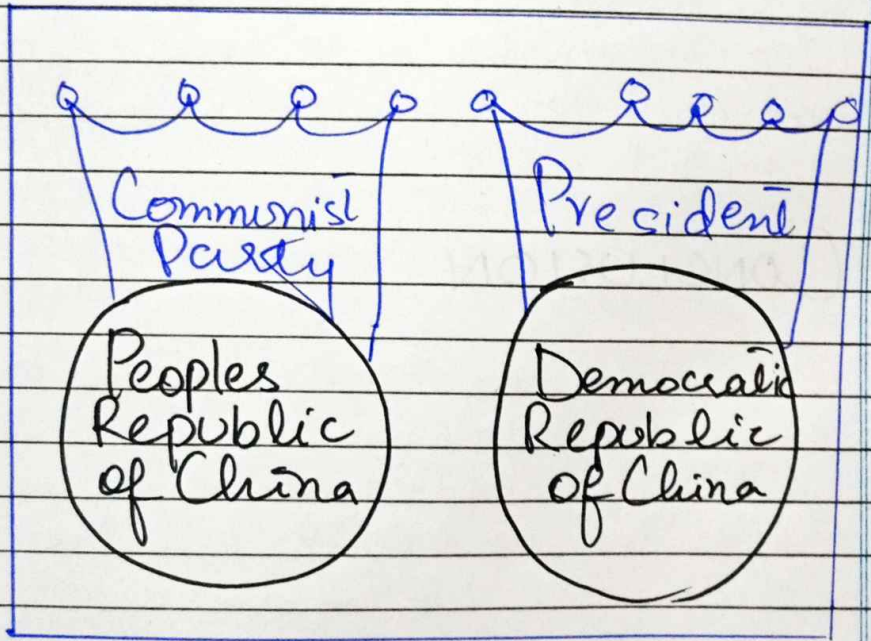 Communist
Party
Peoples
Republic
of China
President
Democratic
Republic
of China